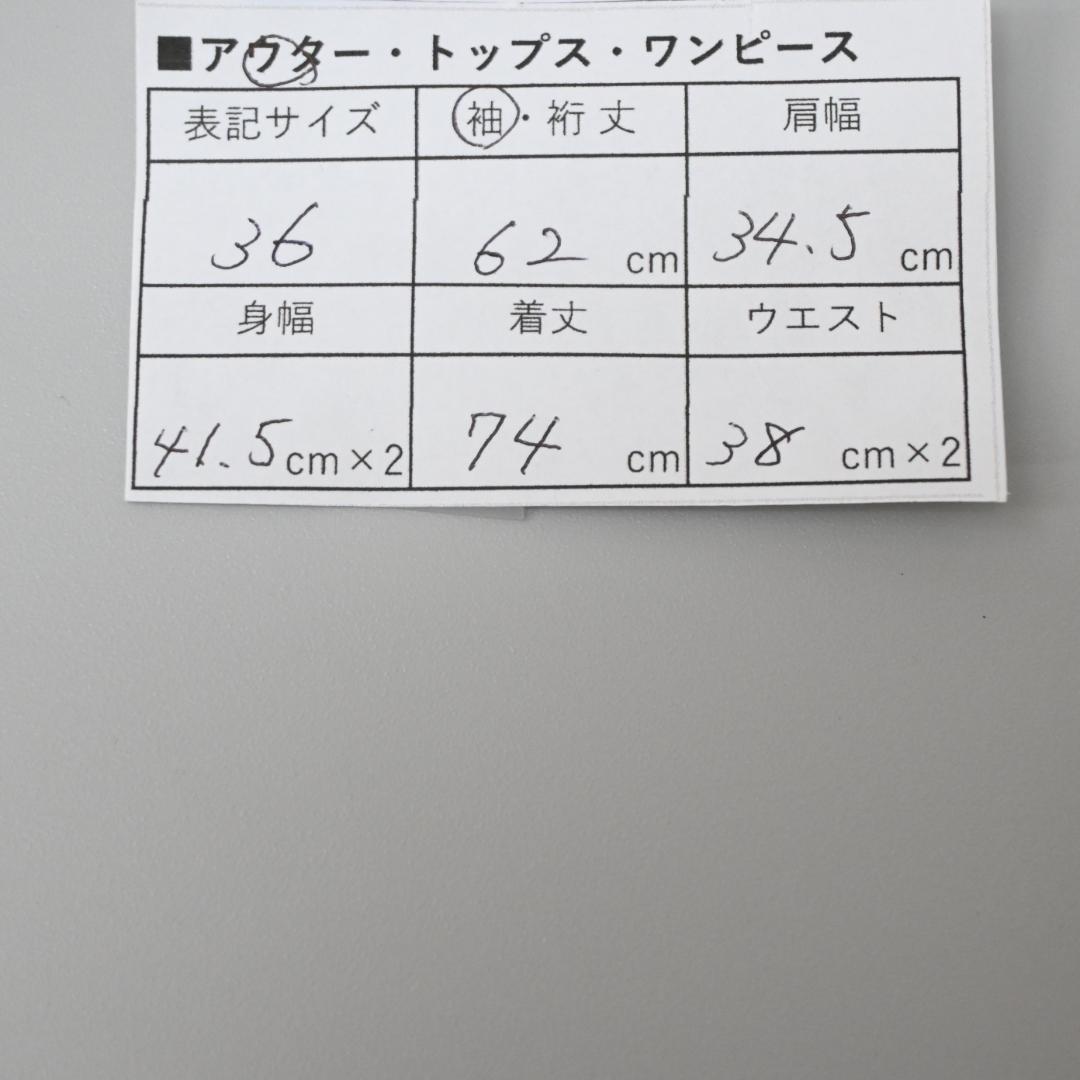 ■アウター・トップス・ワンピース
表記サイズ 袖・裄丈 肩幅
36 62 cm 34.5 cm
身幅 着丈 ウエスト
41.5 cm×2 74 cm 38 cm×2